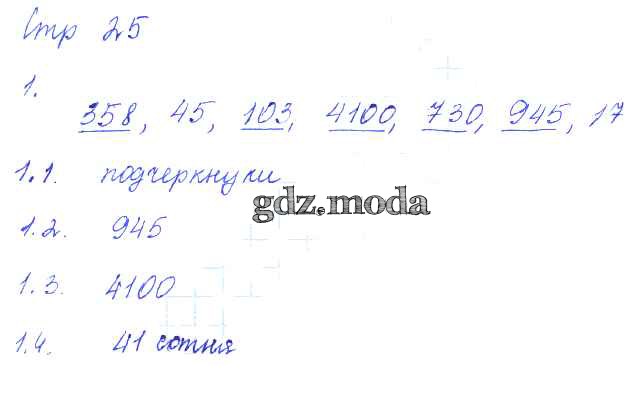 Стр 25
1.
358, 45, 103, 4100, 730, 945, 17
1.1. подчеркнули
gdz.moda
1.2. 945
1.3. 4100
1.4. 41 сотня